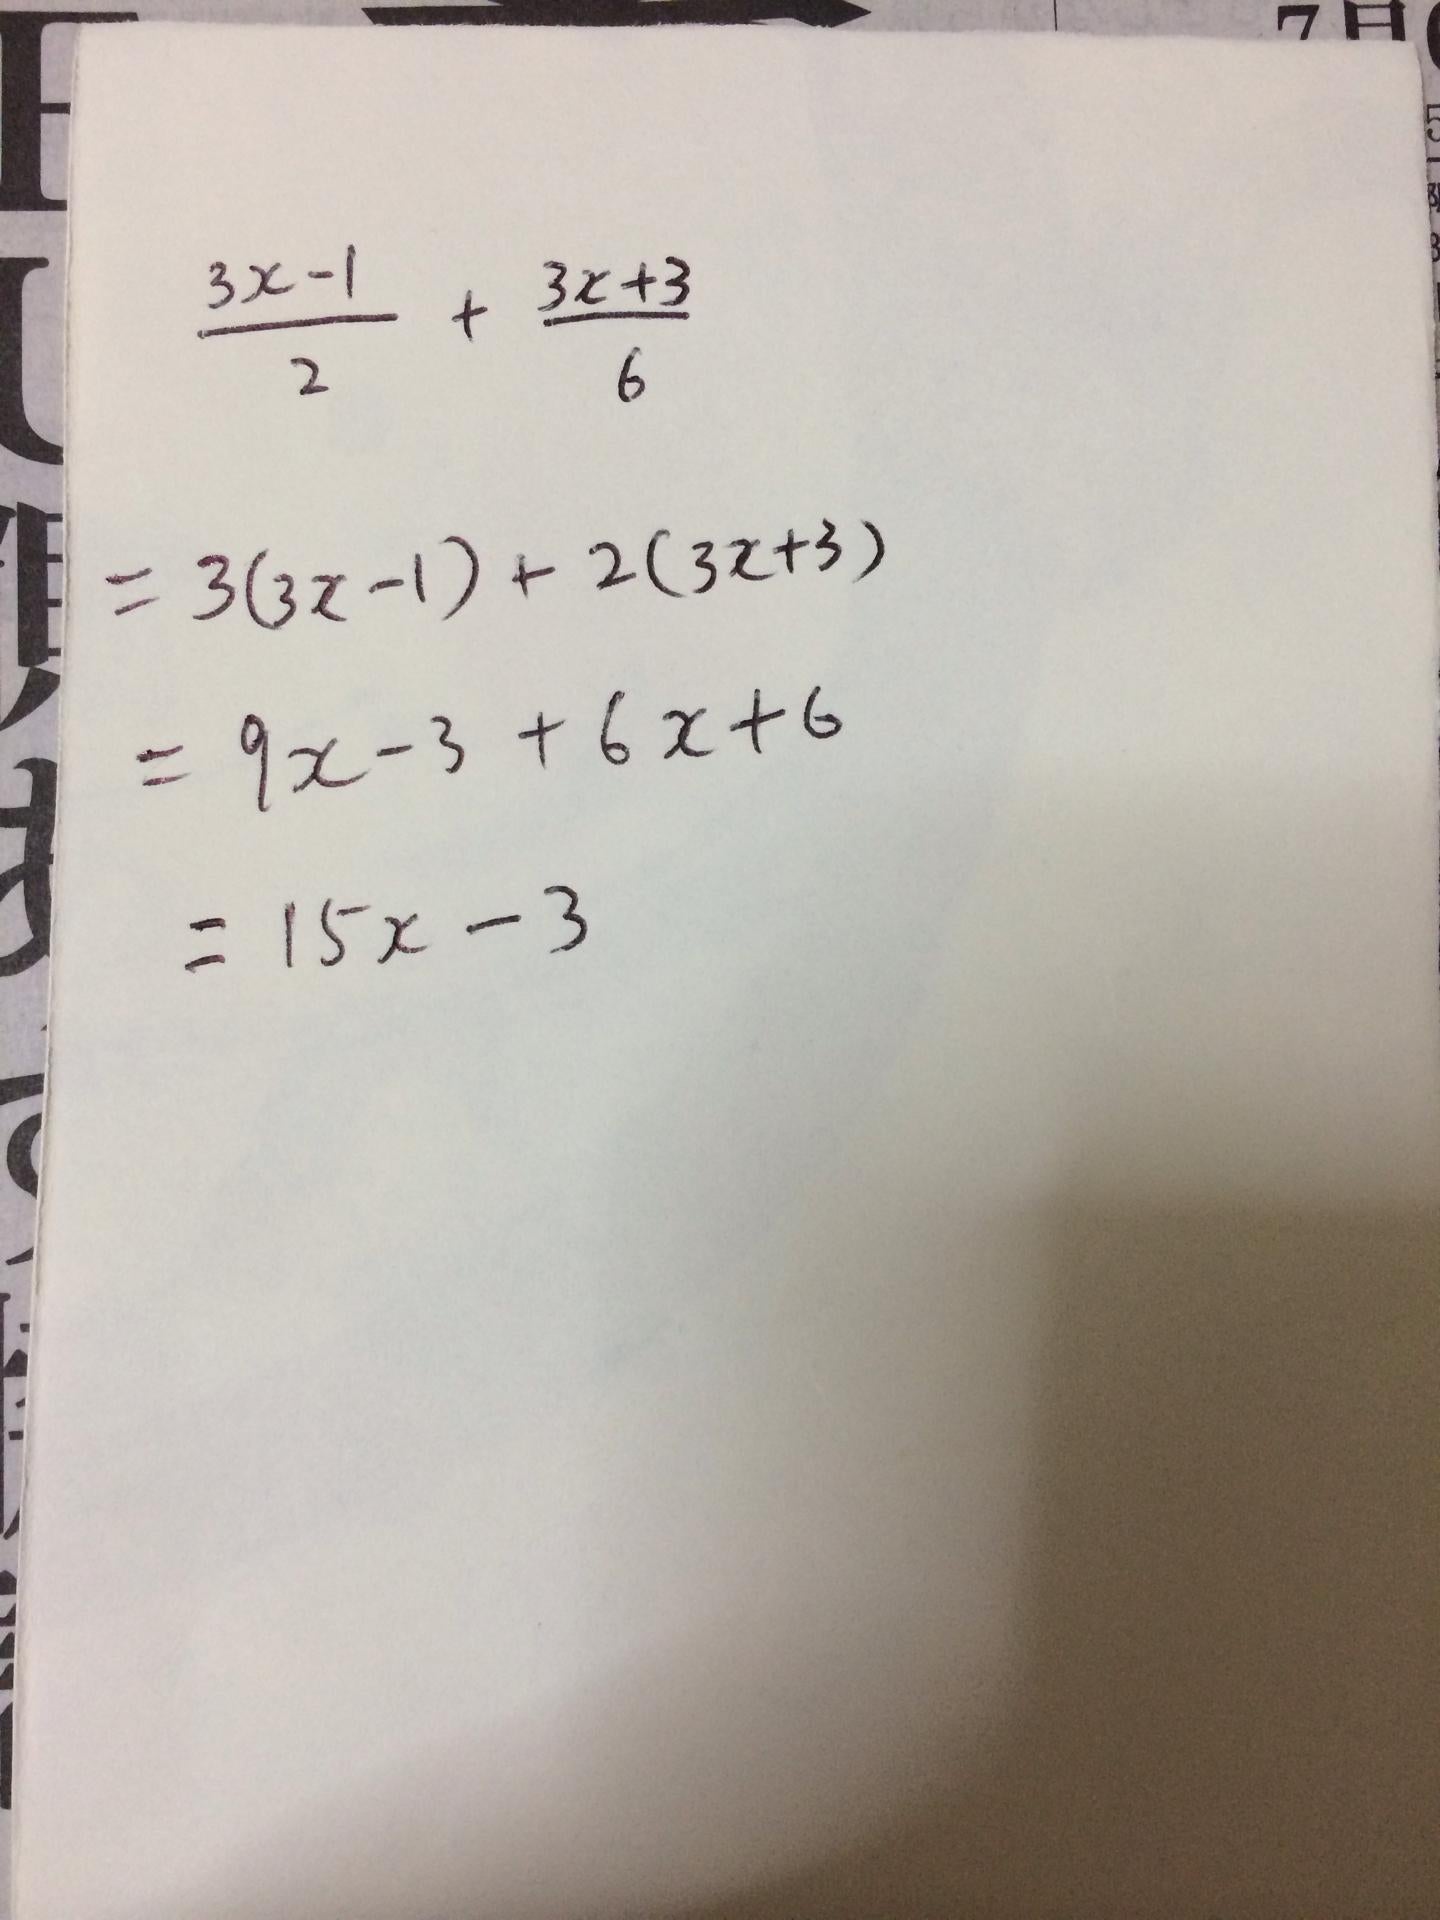 7月
(3x-1)/2 + (3x+3)/6
= 3(3x-1) + 2(3x+3)
= 9x-3 + 6x+6
= 15x - 3